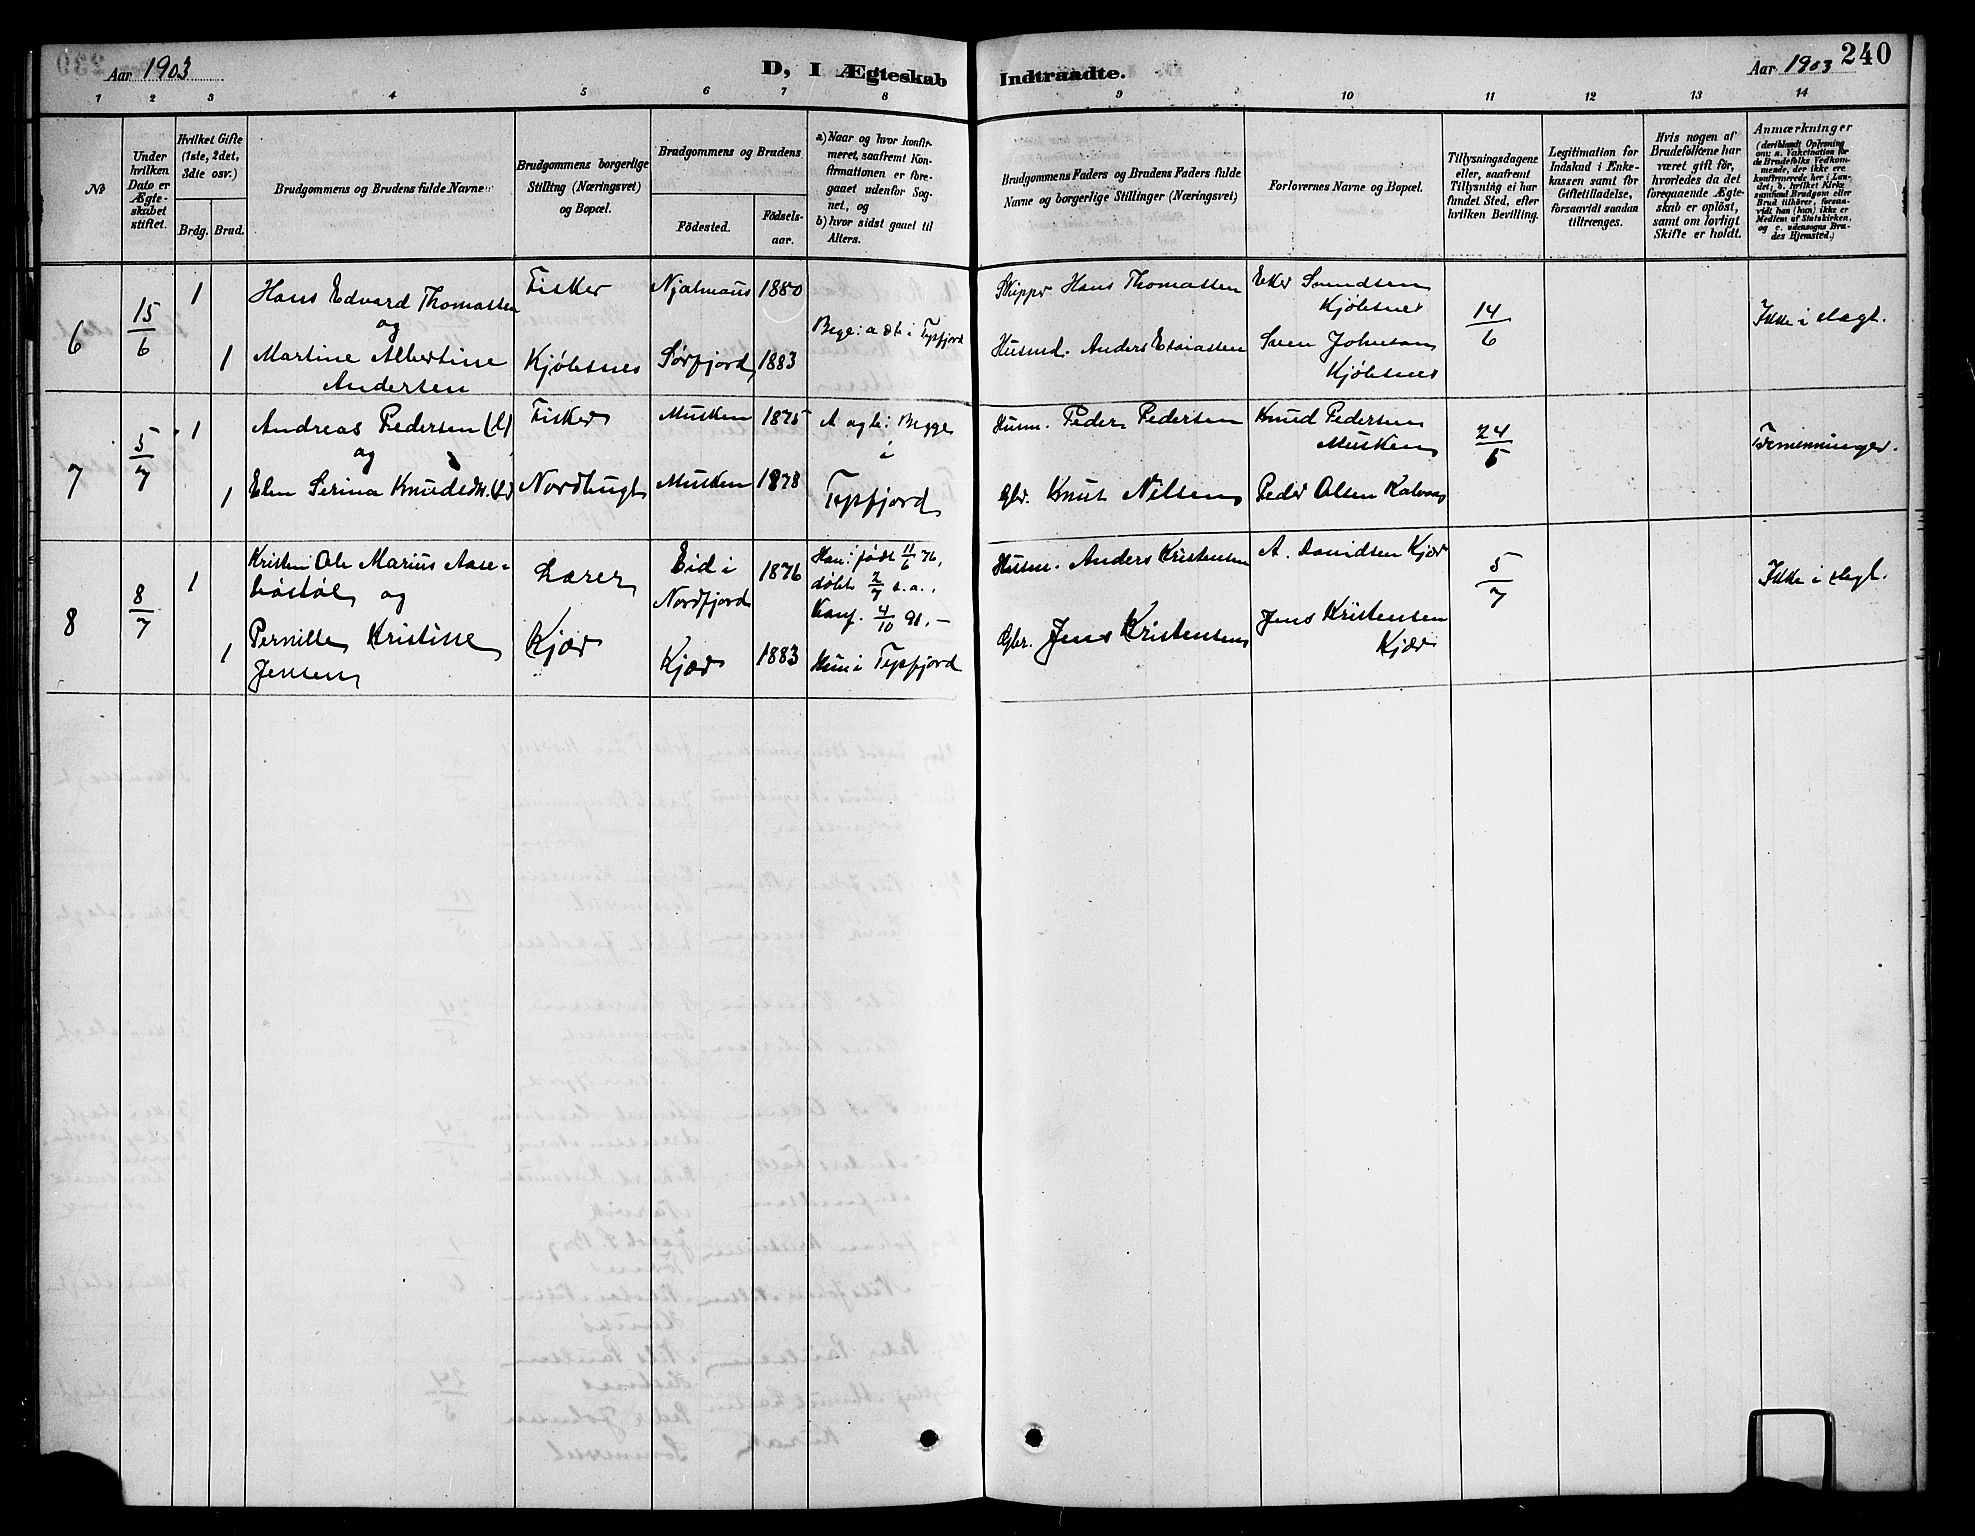 Aar 1903
D, I Ægteskab Indtraadte.
Aar 1903
240
1 2 3 4 5 6 7 8 9 10 11 12 13 14
No
Under
hvilken
Dato er
Ægte-
skabet
stiftet.
Hvilket Gifte
(1ste, 2det,
3dte osv.)
Brdg. Brud.
Brudgommens og Brudens fulde Navne
Brudgommens borgerlige
Stilling (Næringsvei)
og Bopæl.
Brudgommens og Brudens
Födested.
Födsels-
aar.
a) Naar og hvor konfir-
meret, saafremt Kon-
firmationen er fore-
gaaet udenfor Sog-
net, og
b) hvor sidst gaaet til
Alters.
Brudgommens Faders og Brudens Faders fulde
Navne og borgerlige Stillinger (Næringsvei)
Forlovernes Navne og Bopæl.
Tillysningsdagene
eller, saafremt
Tillysning ei har
fundet Sted, efter
hvilken Bevilling.
Legitimation for
Indskud i Enke-
kassen samt for
Giftetilladelse,
forsaavidt saadan
tiltrænges.
Hvis nogen af
Brudefolkene har
været gift för,
hvorledes da det
foregaaende Ægte-
skab er oplöst,
samt om lovligt
Skifte er holdt.
Anmærkninger
(deriblandt Oplysning
om: a. Vakcination for
de Brudefolks Vedkom-
mende, der ikke ere
konfirmerede her i Lan-
det; b. hvilket Kirke
samfund Brudgom eller
Brud tilhörer, forsaa-
vidt han (hun) ikke er
Medlem af Statskirken,
og c. udensogns Bru-
des Hjemsted.)
6
15/6
1
1
Hans Edvard Thomassen
og
Martine Albertine
Andersen
Fisker
Kjöbsnes
1880
Sörfjord
1883
i Tysfjord
Skippr. Hans Thomassen
Husmd. Anders Esaiassen
Svendsen
Kjöbsnes
Sven Johnsen
Kjöbsnes
14/6
Ikke i slægt.
7
5/7
1
1
Andreas Pedersen (l)
og
Elen Serina Knudsdtr. (l)
Fisker
Nordbugt
Musken
1875
Musken
1878
A og b: Begge
i
Tysfjord
Husm. Peder Pedersen
Gbr. Knut Nilsen
Knud Pedersen
Musken
Peder Olsen
24/5
Tremenninger.
8
8/7
1
1
Kristen Ole Marius Aase-
og
Pernille Kristine
Jensen
Lærer
Kjær
Eid i
Nordfjord
1876
Kjær
1883
Han: födt 11/6 76,
döbt 2/7 s.a.,
Konf. 4/10 91.-
Hun i Tysfjord
Husm. Anders Kristensen
Gbr. Jens Kristensen
A. Davidsen Kjær
Jens Kristensen
Kjær
5/7
Ikke i slegt.